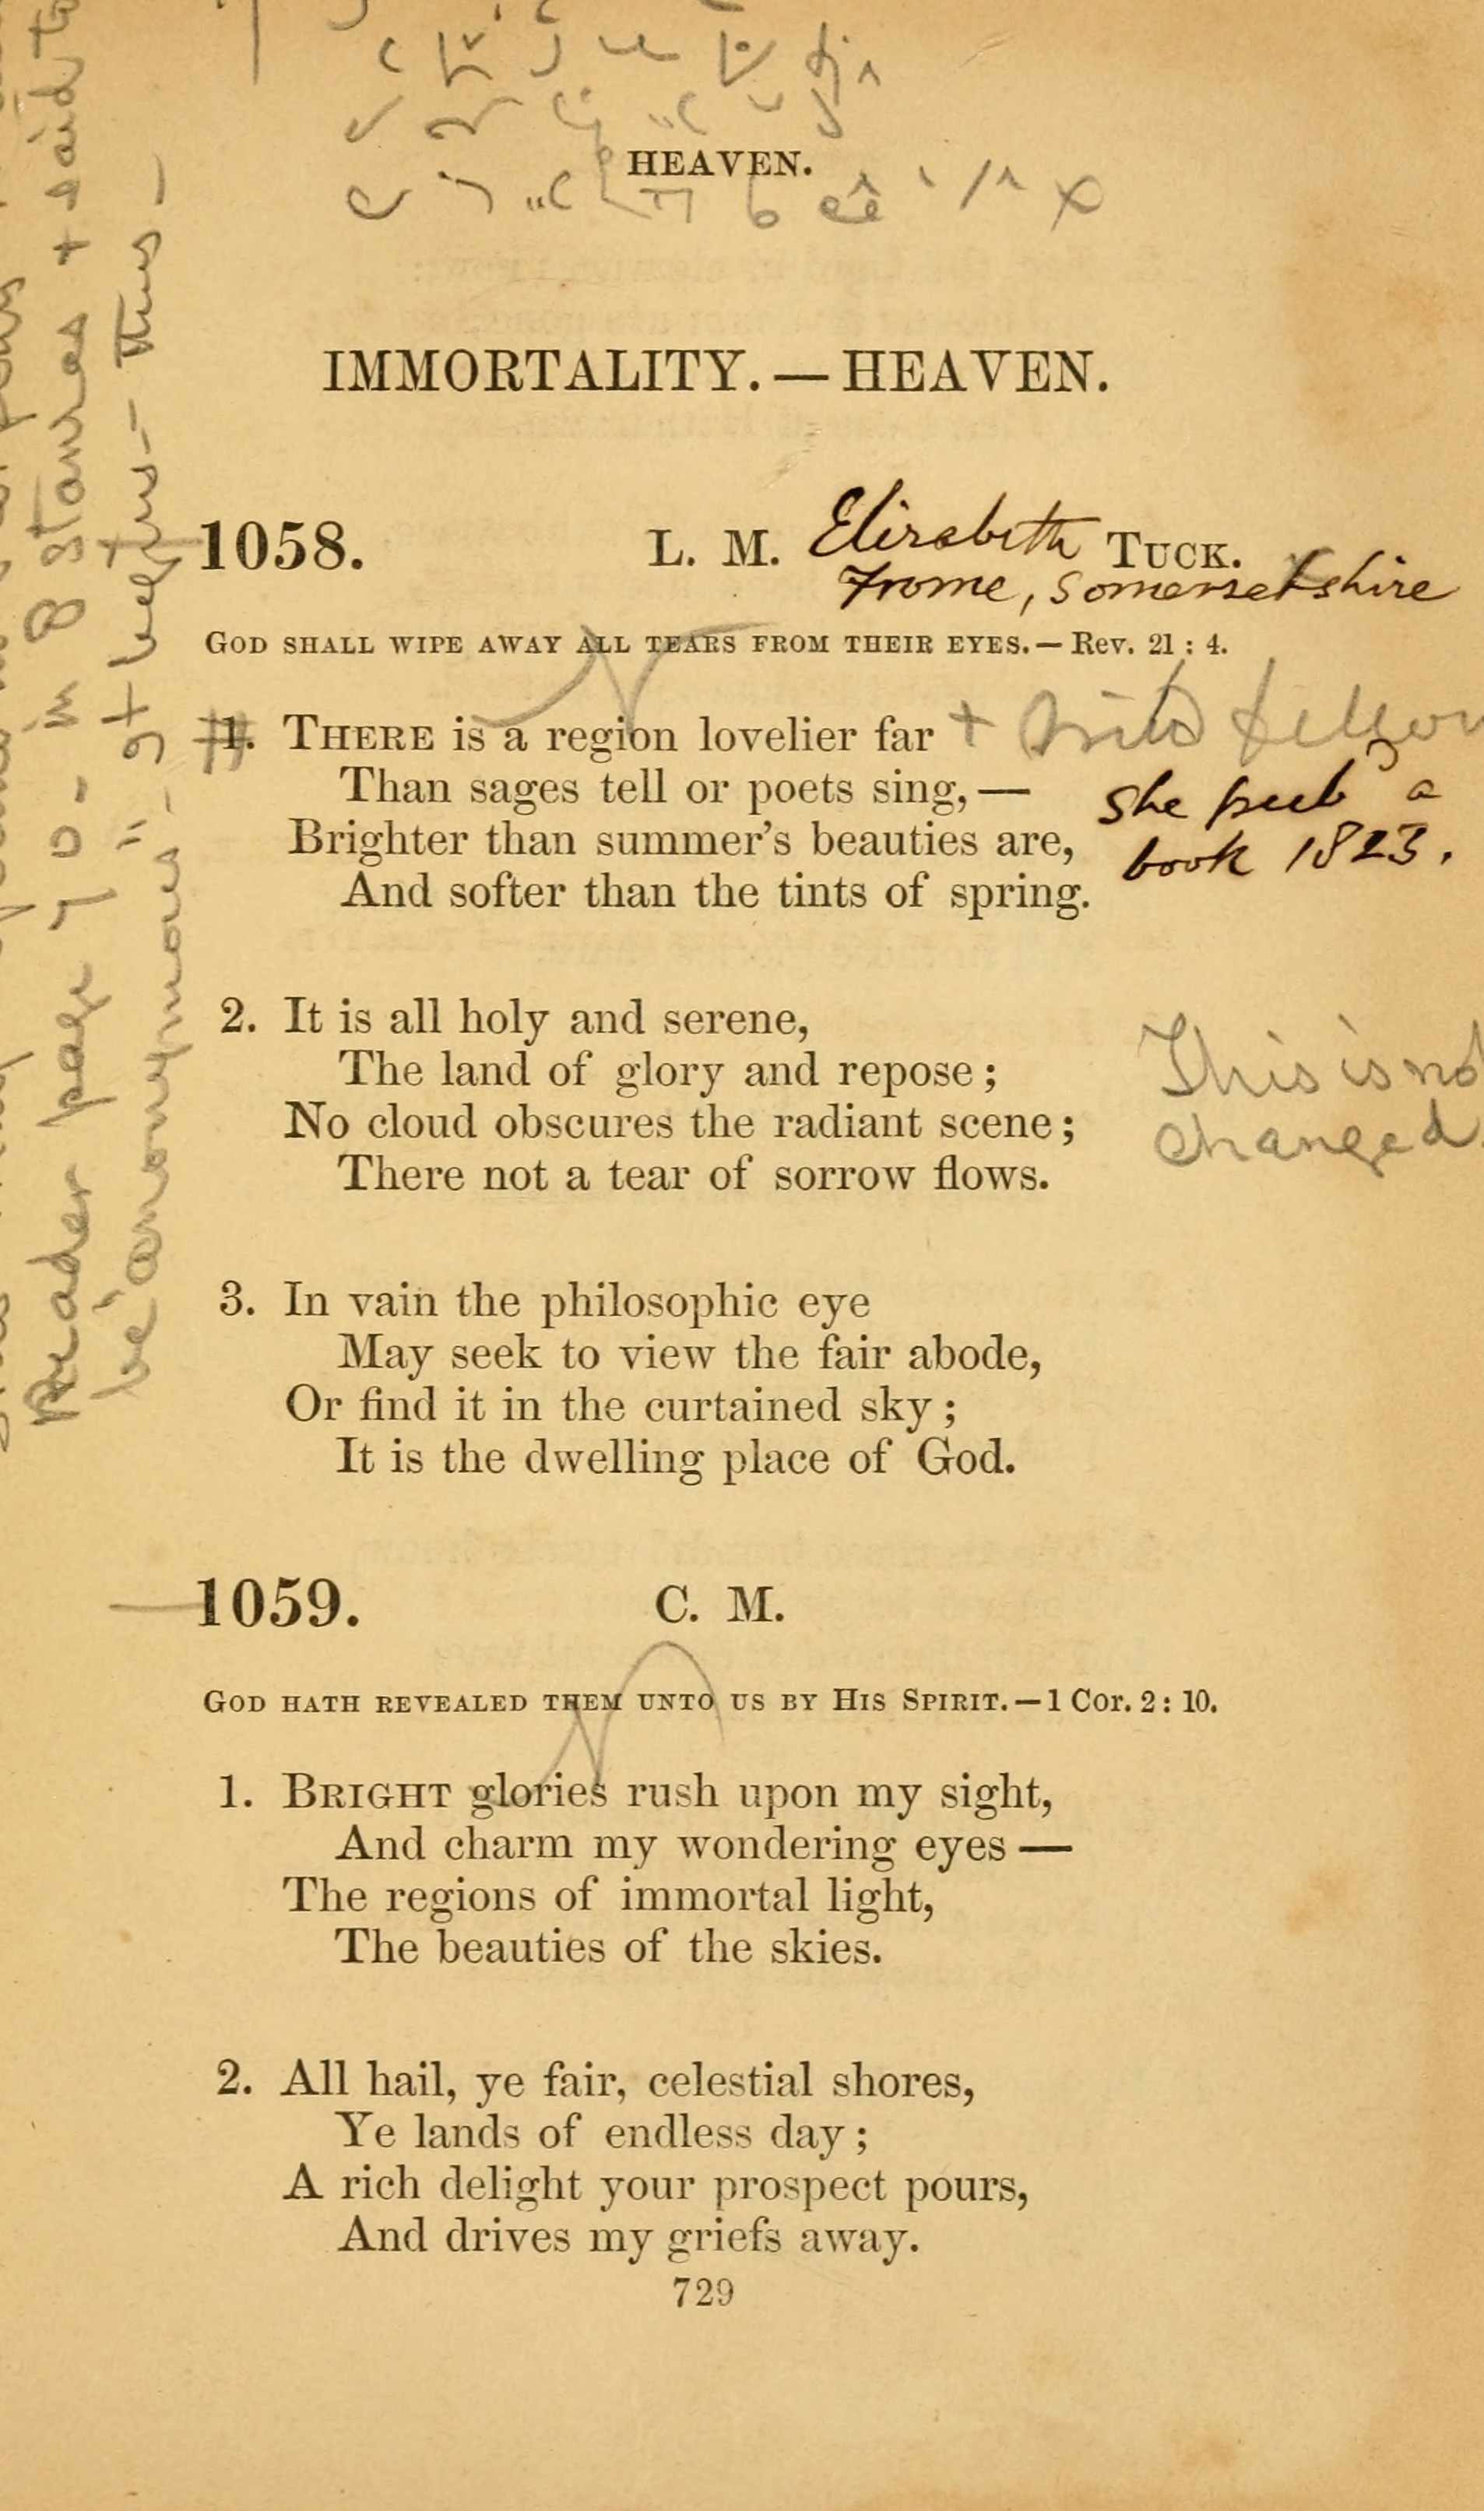 HEAVEN.
IMMORTALITY. — HEAVEN.
1058. L. M. Elizabeth TUCK.
Frome, Somersetshire
GOD SHALL WIPE AWAY ALL TEARS FROM THEIR EYES. — Rev. 21 : 4.
1. THERE is a region lovelier far +
Than sages tell or poets sing, —
Brighter than summer's beauties are,
And softer than the tints of spring.
she pub a
book 1823.
2. It is all holy and serene,
The land of glory and repose ;
No cloud obscures the radiant scene ;
There not a tear of sorrow flows.
This is not
changed.
3. In vain the philosophic eye
May seek to view the fair abode,
Or find it in the curtained sky ;
It is the dwelling place of God.
1059. C. M.
GOD HATH REVEALED THEM UNTO US BY HIS SPIRIT. — 1 Cor. 2 : 10.
1. BRIGHT glories rush upon my sight,
And charm my wondering eyes —
The regions of immortal light,
The beauties of the skies.
2. All hail, ye fair, celestial shores,
Ye lands of endless day ;
A rich delight your prospect pours,
And drives my griefs away.
729
Reader page 70 - in 8 stanzas + said to
be "anonymous" - It begins - thus -